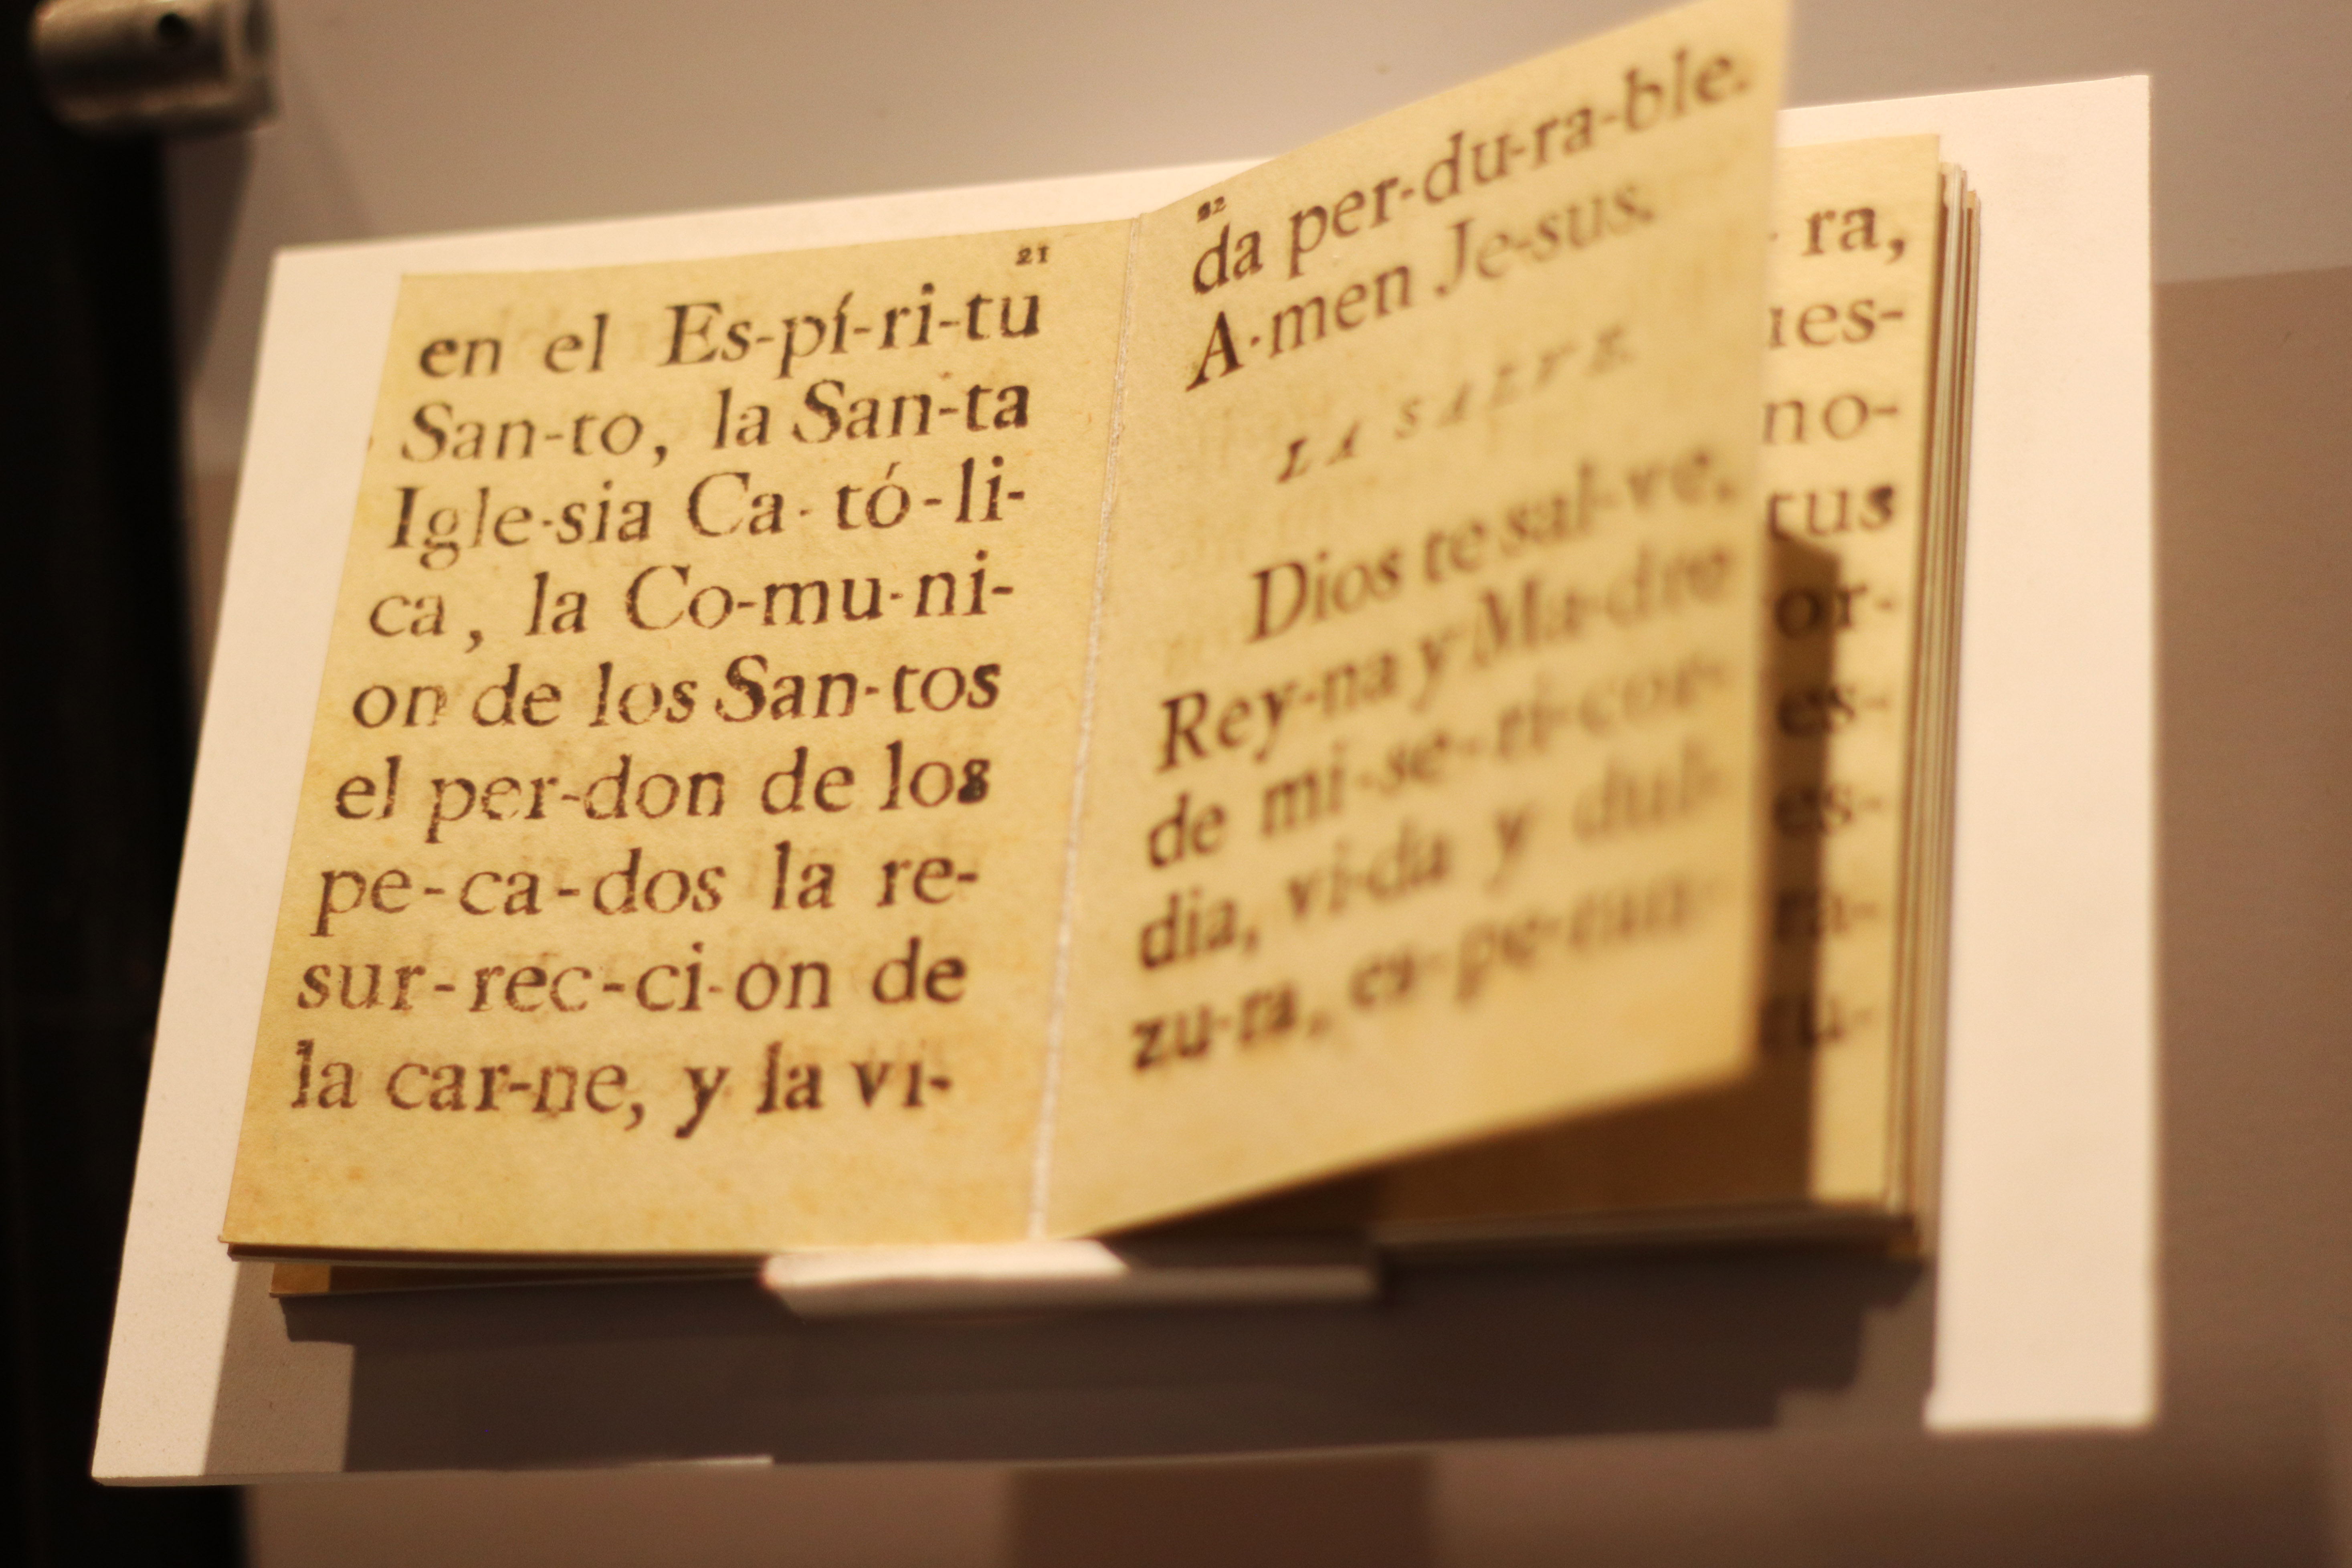 21
en el Es-pí-ri-tu
San-to, la San-ta
Igle-sia Ca-tó-li-
ca, la Co-mu-ni-
on de los San-tos
el per-don de los
pe-ca-dos la re-
sur-rec-ci-on de
la car-ne, y la vi-
22
da per-du-ra-ble.
A-men Je-sus.
LA SALVE.
Dios te sal-ve,
Rey-na y Ma-dre
de mi-se-ri-cor-
dia, vi-da y dul-
zu-ra, es-pe-ran-
ra,
es-
no-
tus
or-
es-
es-
ra-